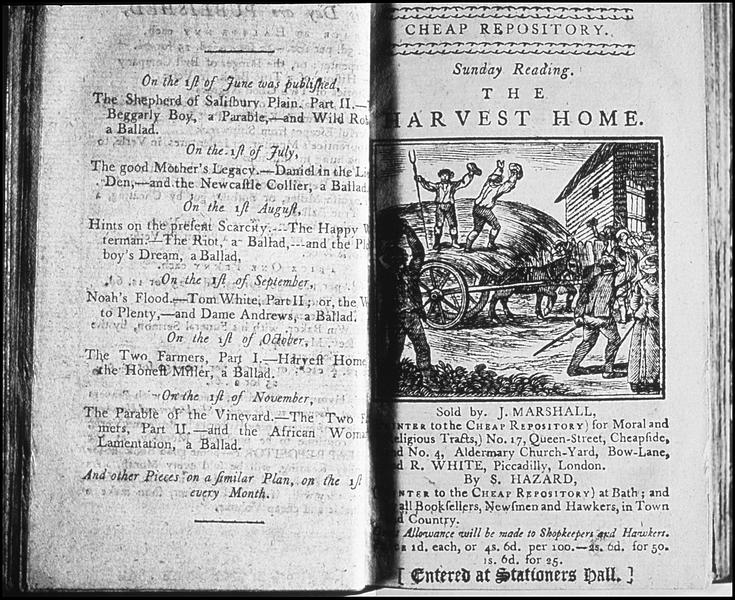 On the 1ſt of June was publiſhed,
The Shepherd of Saliſbury Plain. Part II.—
Beggarly Boy, a Parable,—and Wild Ro
a Ballad.
On the 1ſt of July,
The good Mother's Legacy.—Daniel in the Li
Den,—and the Newcaſtle Collier, a Ballad
On the 1ſt Auguſt,
Hints on the preſent Scarcity.—The Happy W
terman.—The Riot, a Ballad,—and the Pl
boy's Dream, a Ballad,
On the 1ſt of September,
Noah's Flood.—Tom White, Part II; or, the W
to Plenty,—and Dame Andrews, a Ballad.
On the 1ſt of October,
The Two Farmers, Part I.—Harveſt Home
the Honeſt Miller, a Ballad.
On the 1ſt of November,
The Parable of the Vineyard.—The Two F
mers, Part II.—and the African Woma
Lamentation, a Ballad.
And other Pieces on a ſimilar Plan, on the 1ſt
every Month.
CHEAP REPOSITORY.
Sunday Reading.
THE
HARVEST HOME.
Sold by J. MARSHALL,
INTER to the CHEAP REPOSITORY) for Moral and
eligious Tracts,) No. 17, Queen-Street, Cheapſide,
nd No. 4, Aldermary Church-Yard, Bow-Lane,
d R. WHITE, Piccadilly, London.
By S. HAZARD,
INTER to the CHEAP REPOSITORY) at Bath; and
all Bookſellers, Newſmen and Hawkers, in Town
d Country.
Allowance will be made to Shopkeepers and Hawkers.
1d. each, or 4s. 6d. per 100.—2s. 6d. for 50.
1s. 6d. for 25.
[Entered at Stationers Hall.]